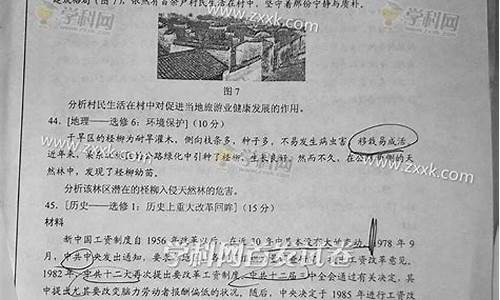 建成格局(图7),依然有百余户村民生活在村中,坚守着那份宁静与质朴。
图7
分析村民生活在村中对促进当地旅游业健康发展的作用。
44. [地理——选修6:环境保护] (10分)
干旱区的柽柳为耐旱灌木,侧向枝条多,种子多,不易发生病虫害,移栽易成活。
近年来,某林区的公路绿化中引种了柽柳,生长良好。然而不久,在公路两侧的天
然林中,发现了柽柳幼苗。
分析该林区潜在的柽柳入侵天然林的危害。
45. [历史——选修1:历史上重大改革回眸] (15分)
材料
新中国工资制度自1956年改革以后,在近30年中基本没有大的变动。1978年9
月,中共中央发出通知,要求
工资改革意见。
1982年,中共十二大再次提出要改革工资制度。中共十二届三中全会通过有关决定,其
中提出尤其要改变脑力劳动者报酬偏低的状况。随后,中央决定于1985年进行工资改
学科网
www.zxxk.com
学科网
www.zxxk.com
www.zxxk.com
www.zxxk.com
学科网首发试卷